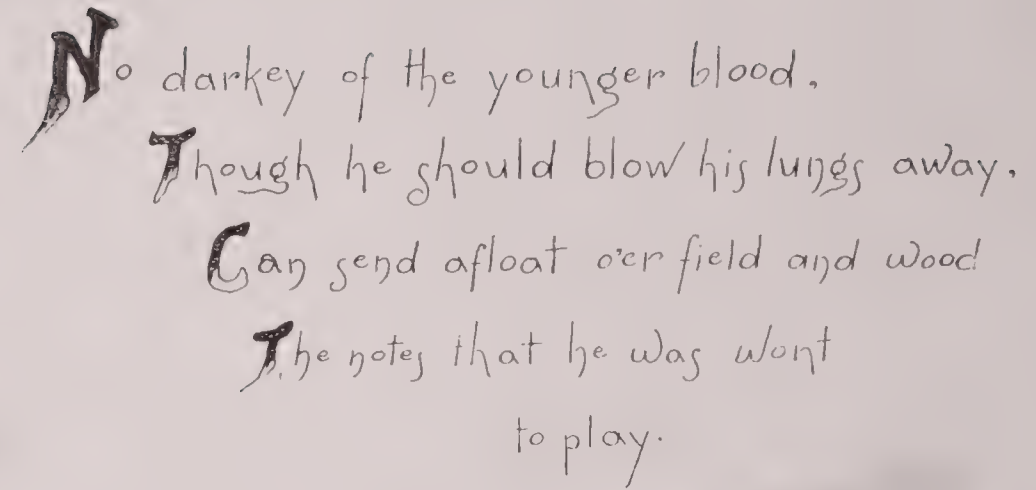 No darkey of the younger blood,
Though he should blow his lungs away,
Can send afloat o'er field and wood
The notes that he was wont
to play.